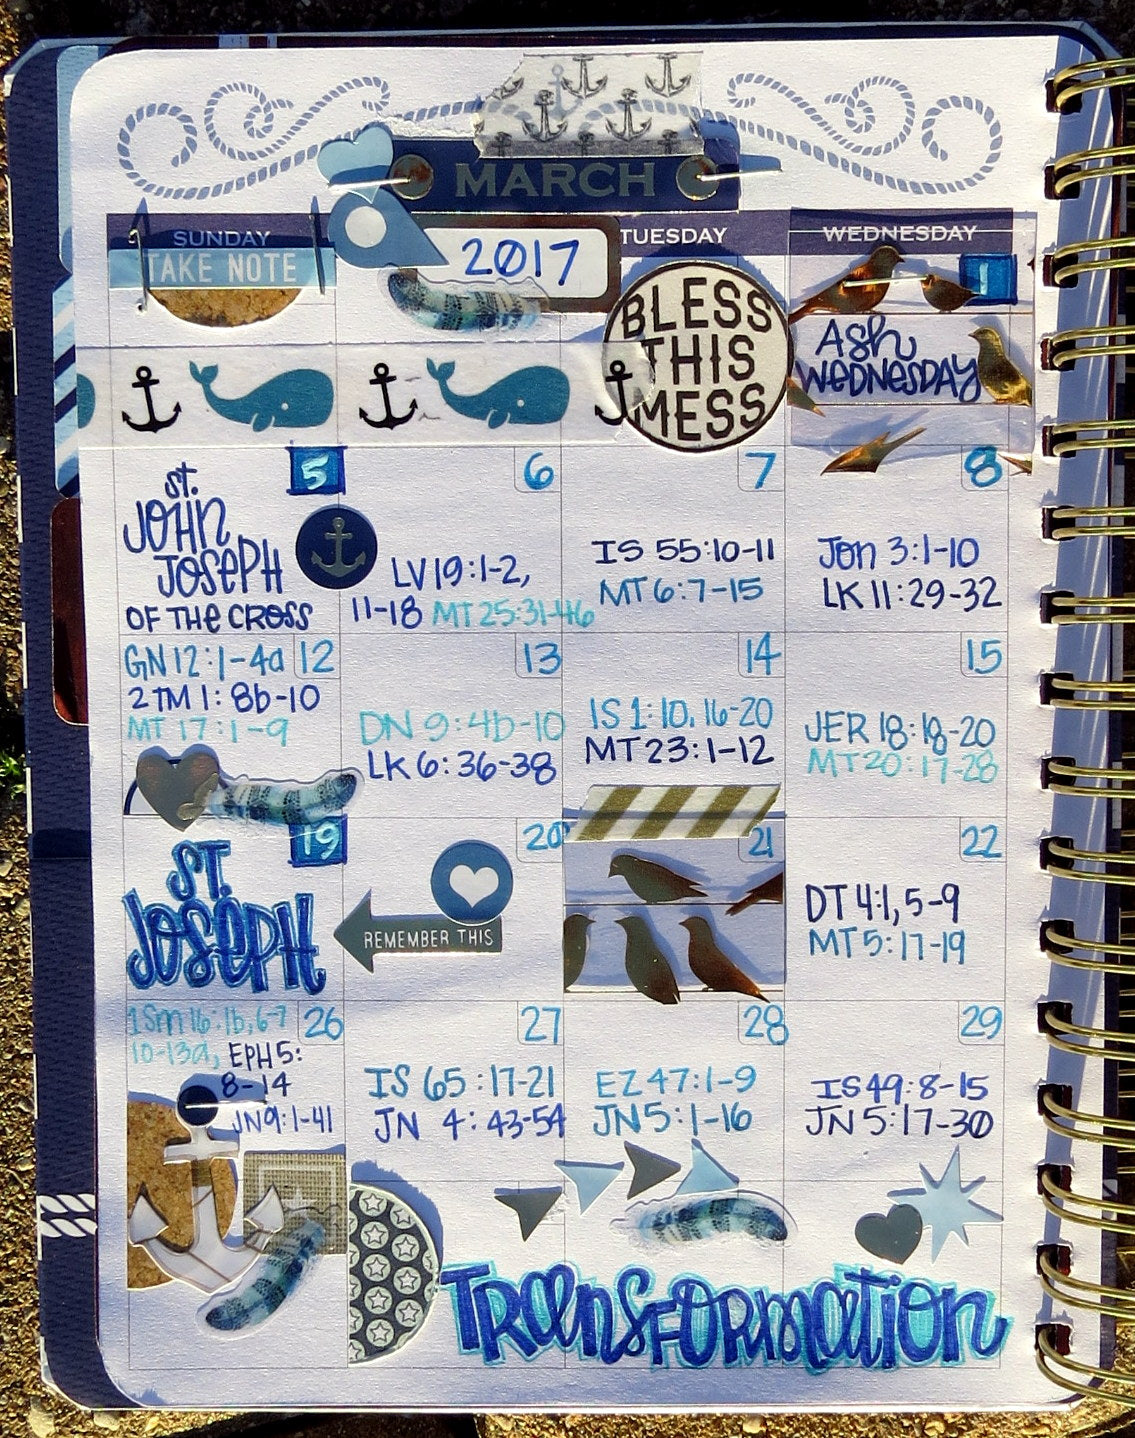 MARCH
SUNDAY
TUESDAY
WEDNESDAY
TAKE NOTE
2017
BLESS
THIS
MESS
1
ASH
WEDNESDAY
5
ST.
JOHN
JOSEPH
OF THE CROSS
6
LV 19:1-2,
11-18 MT 25:31-46
7
IS 55:10-11
MT 6:7-15
8
Jon 3:1-10
LK 11:29-32
GN 12:1-4a 12
2 TM 1: 8b-10
MT 17:1-9
13
DN 9:4b-10
LK 6:36-38
14
IS 1:10, 16-20
MT 23:1-12
15
JER 18:18-20
MT 20:17-28
19
ST.
JOSEPH
20
REMEMBER THIS
21
22
DT 4:1, 5-9
MT 5:17-19
1 Sm 16:1b, 6-7 26
10-13a, EPH 5:
8-14
JN 9:1-41
27
IS 65:17-21
JN 4:43-54
28
EZ 47:1-9
JN 5:1-16
29
IS 49:8-15
JN 5:17-30
TRANSFORMATION